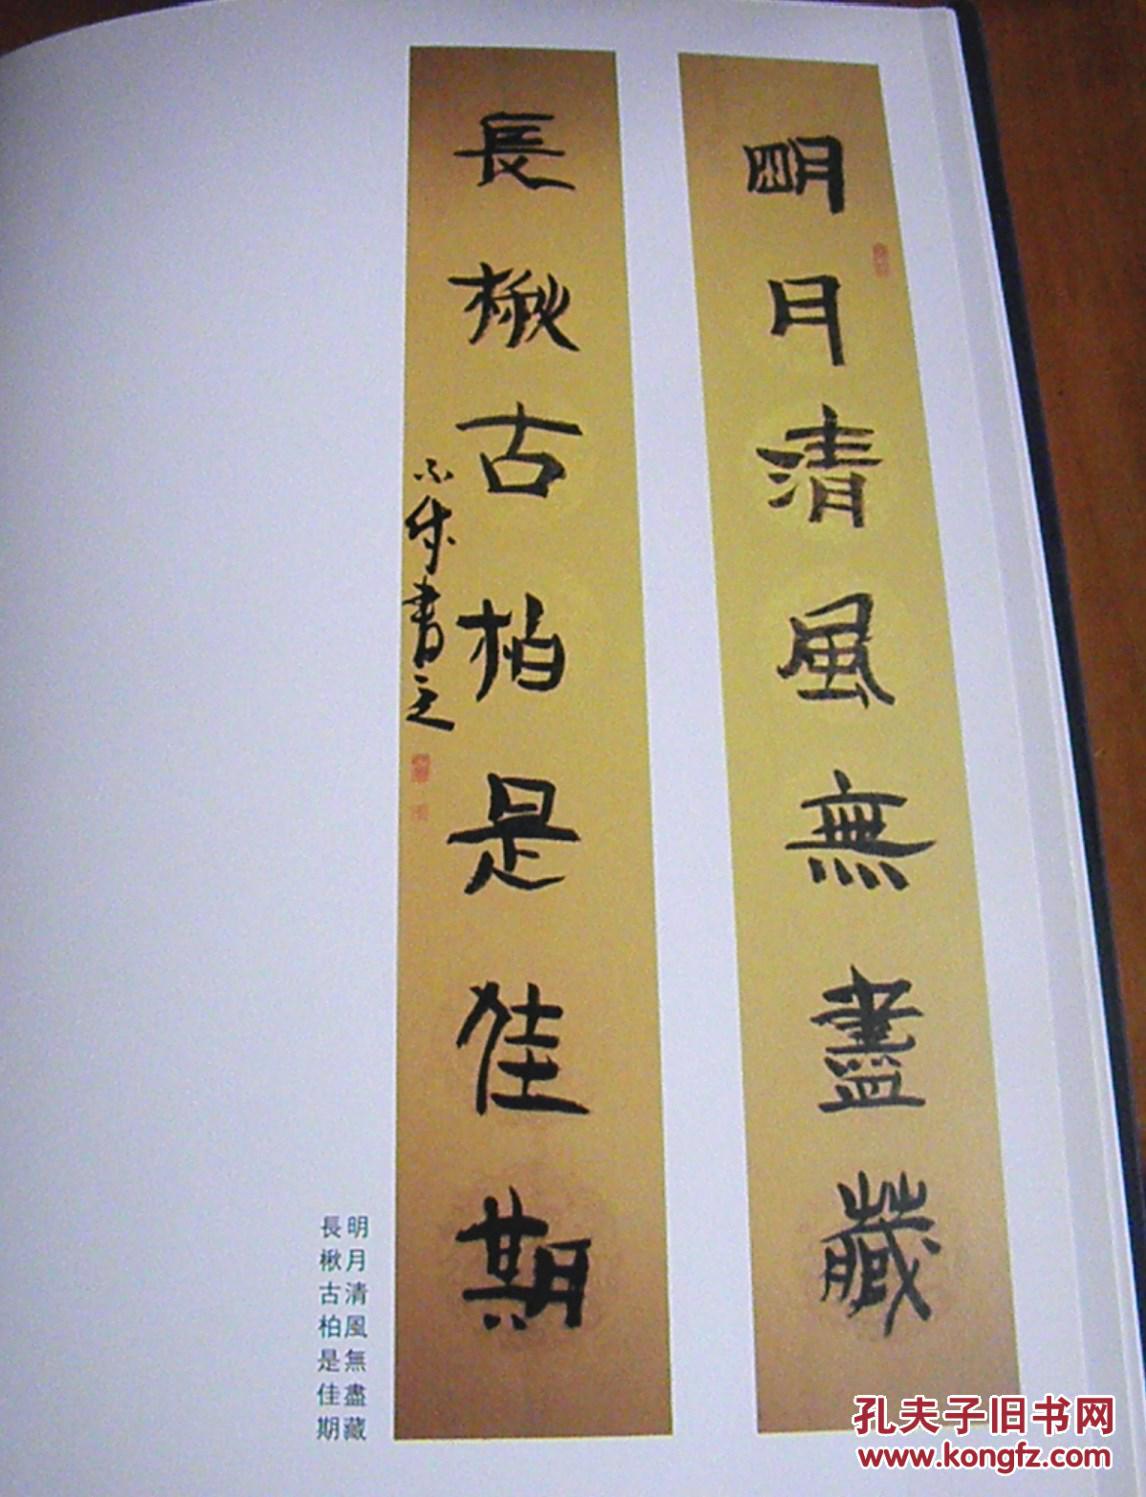 明月清風無盡藏
長楸古柏是佳期
書之
明月清風無盡藏
長楸古柏是佳期
孔夫子旧书网
www.kongfz.com